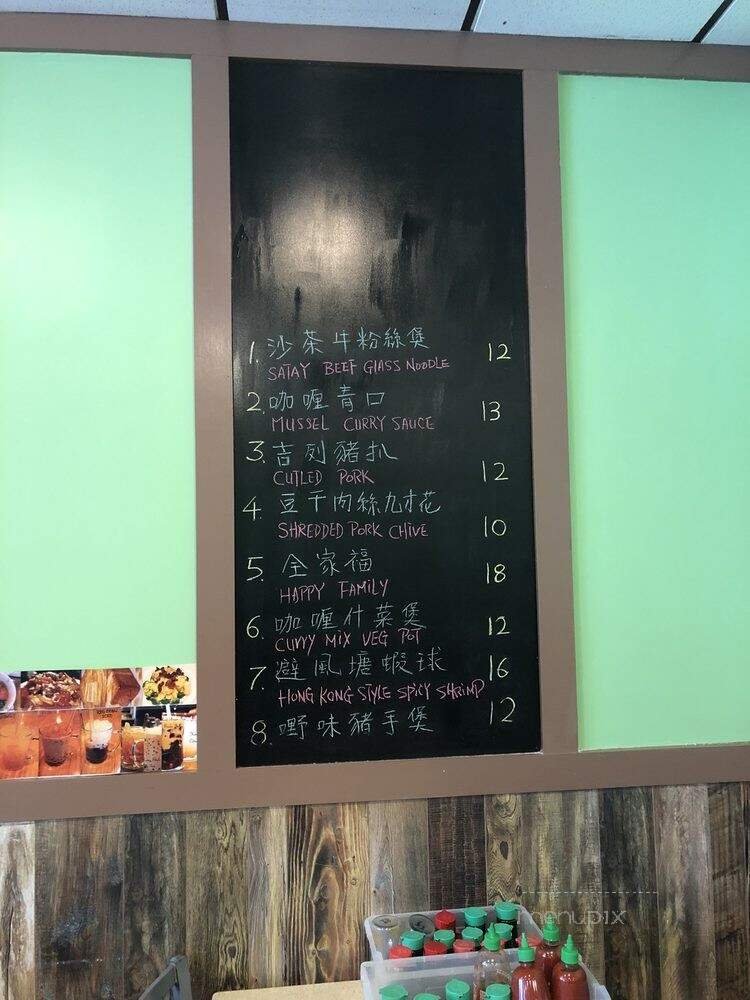 1. 沙茶牛粉絲煲 12
SATAY BEEF GLASS NOODLE
2. 咖喱青口 13
MUSSEL CURRY SAUCE
3. 吉列豬扒 12
CUTLED PORK
4. 豆干肉絲九才花 10
SHREDDED PORK CHIVE
5. 全家福 18
HAPPY FAMILY
6. 咖喱什菜煲 12
CURRY MIX VEG POT
7. 避風塘蝦球 16
HONG KONG STYLE SPICY SHRIMP
8. 嘢味豬手煲 12
menupix